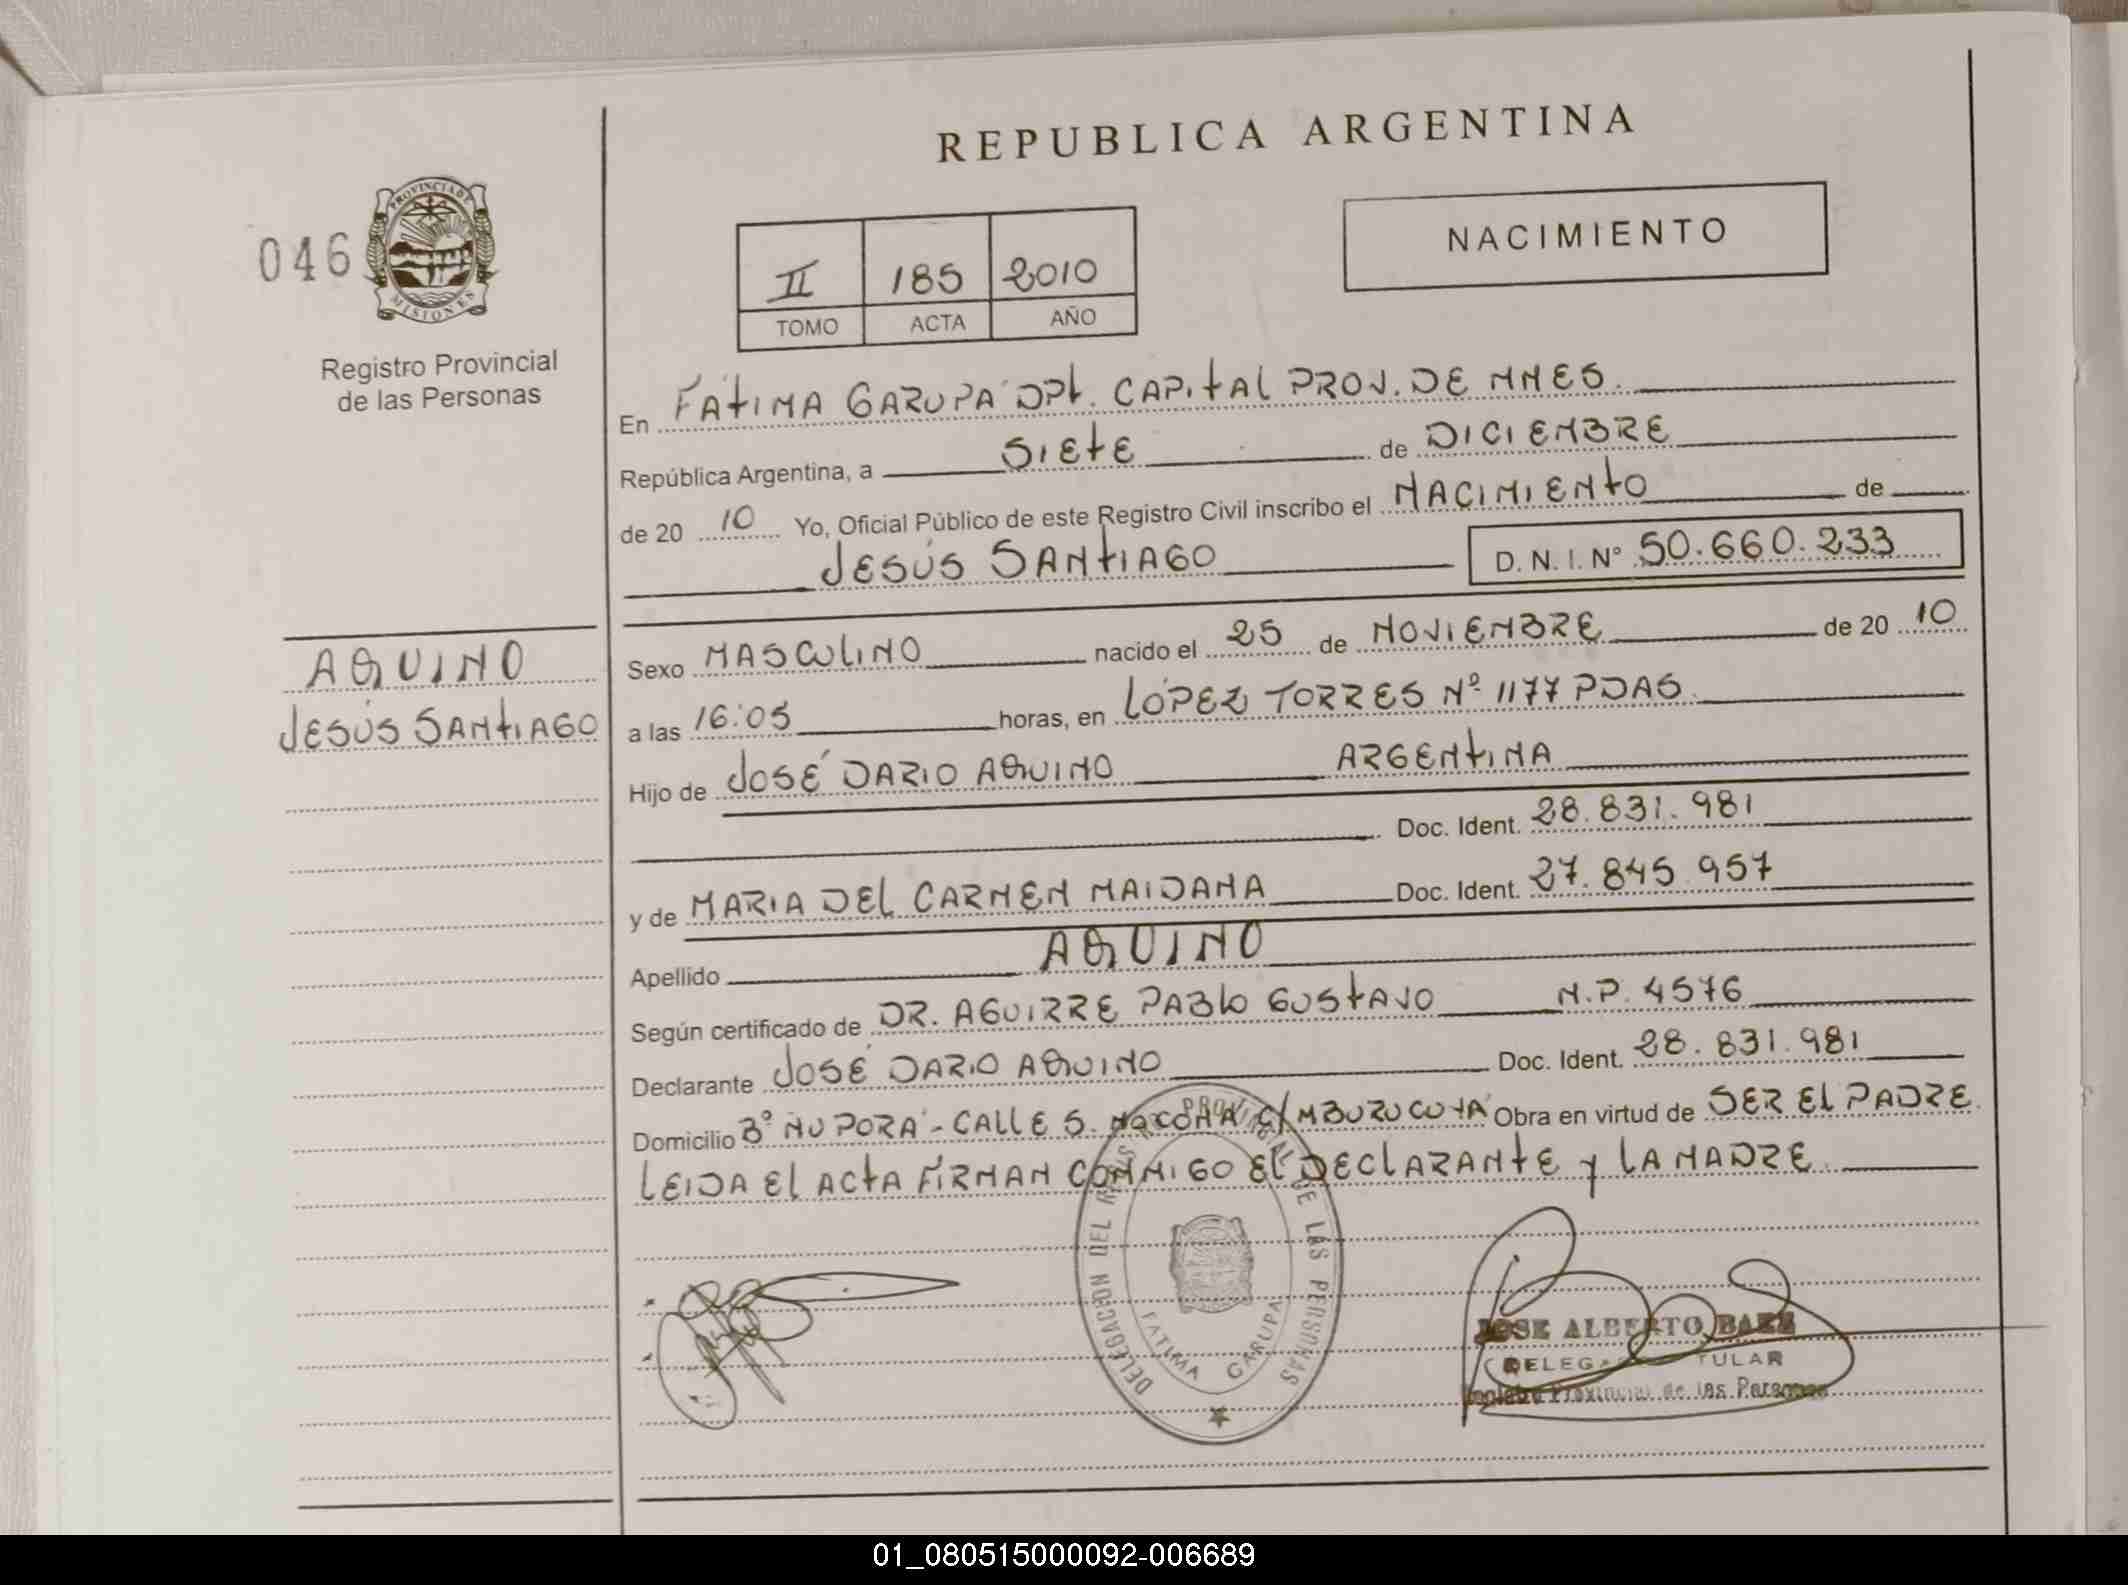 REPUBLICA ARGENTINA
046
PROVINCIA DE
MISIONES
Registro Provincial
de las Personas
NACIMIENTO
II 185 2010
TOMO ACTA AÑO
En FÁTIMA GARUPÁ DPt. CAPITAL PROV. DE MNES.
República Argentina, a SIETE de DICIEMBRE
de 20 10 Yo, Oficial Público de este Registro Civil inscribo el NACIMIENTO de
JESÚS SANTIAGO D. N. I. Nº 50.660.233
AQUINO
JESÚS SANTIAGO
Sexo MASCULINO nacido el 25 de NOVIEMBRE de 20 10
a las 16:05 horas, en LÓPEZ TORRES Nº 1177 PDAS.
Hijo de JOSÉ DARIO AQUINO ARGENTINA
Doc. Ident. 28.831.981
y de MARIA DEL CARMEN MAIDANA Doc. Ident. 27.845.957
Apellido AQUINO
Según certificado de DR. AGUIRRE PABLO GUSTAVO M.P. 4576
Declarante JOSÉ DARIO AQUINO Doc. Ident. 28.831.981
Domicilio Bº ÑU PORÁ - CALLE S. C/ MBURUCUYÁ Obra en virtud de SER EL PADRE
LEIDA EL ACTA FIRMAN CONMIGO EL DECLARANTE y LA MADRE.
DELEGACIÓN DEL REGISTRO PROVINCIAL DE LAS PERSONAS
FATIMA GARUPA
JOSE ALBERTO BAEZ
DELEGADO TITULAR
Provincial de las Personas
01_080515000092-006689